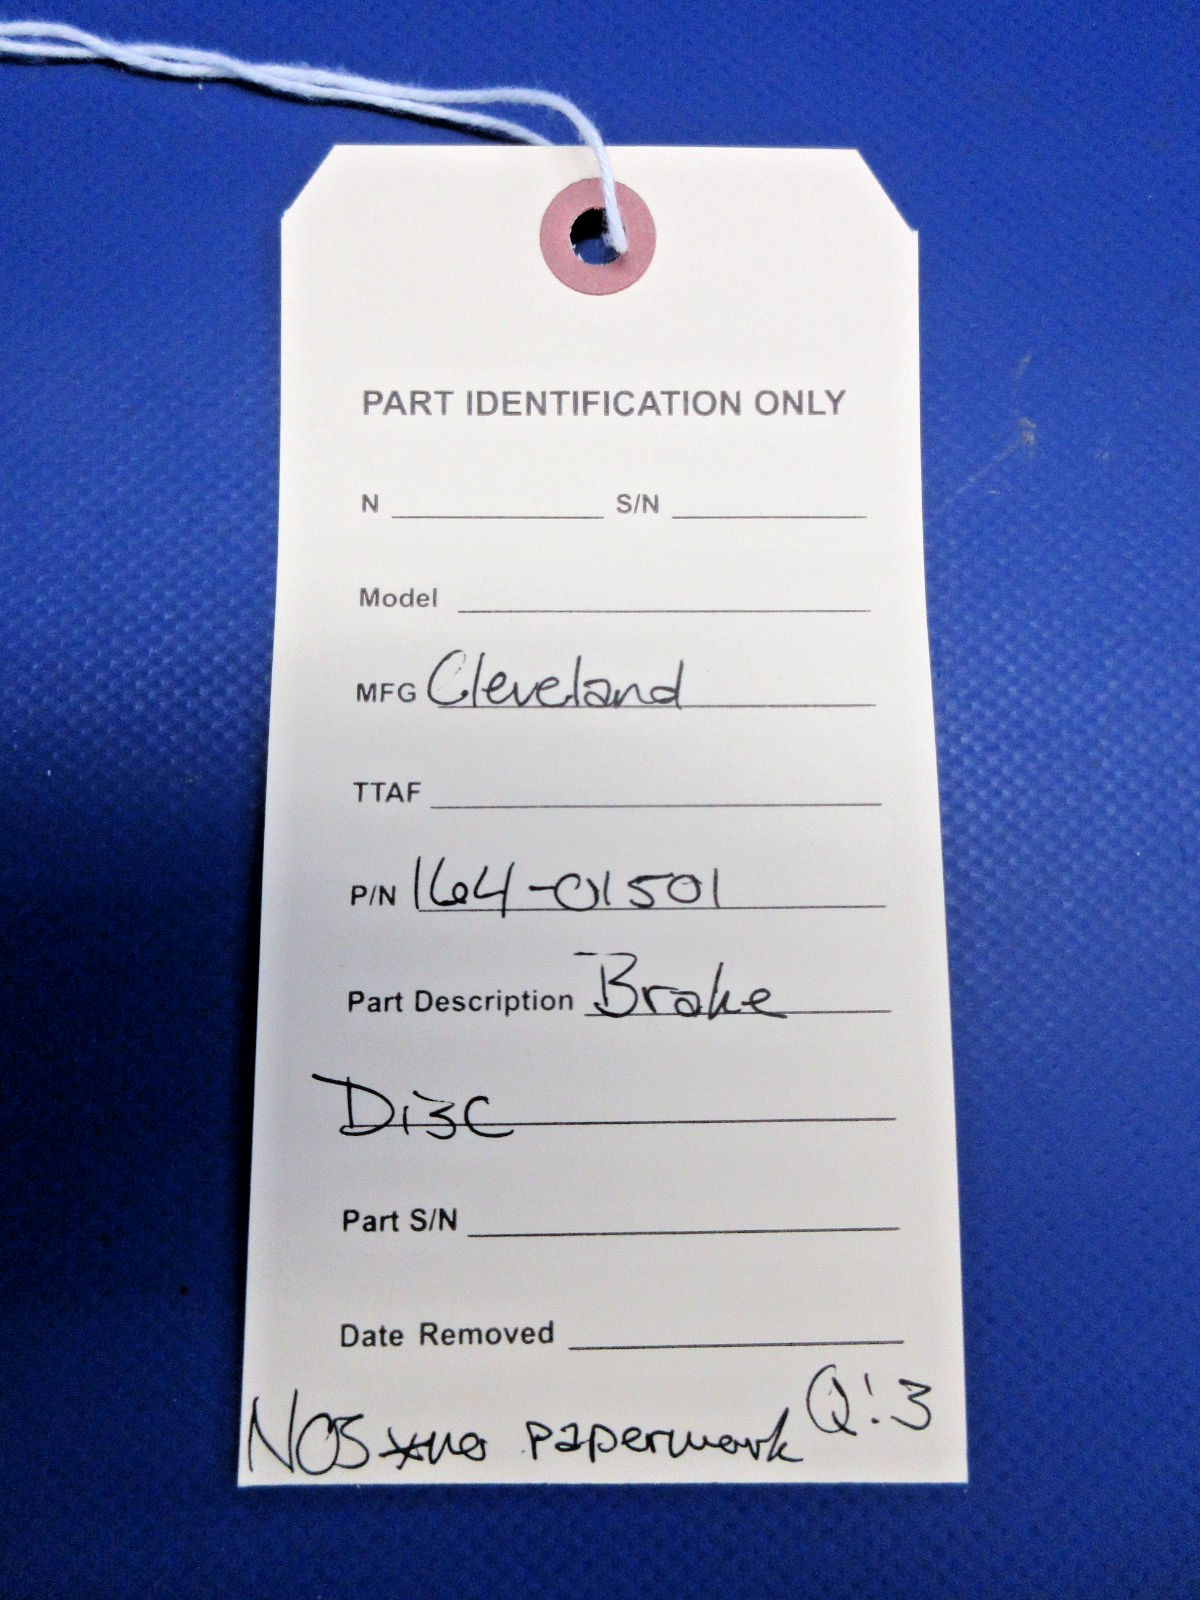 PART IDENTIFICATION ONLY
N S/N
Model
MFG Cleveland
TTAF
P/N 164-01501
Part Description Brake
Disc
Part S/N
Date Removed
Q:3
NOS *no paperwork